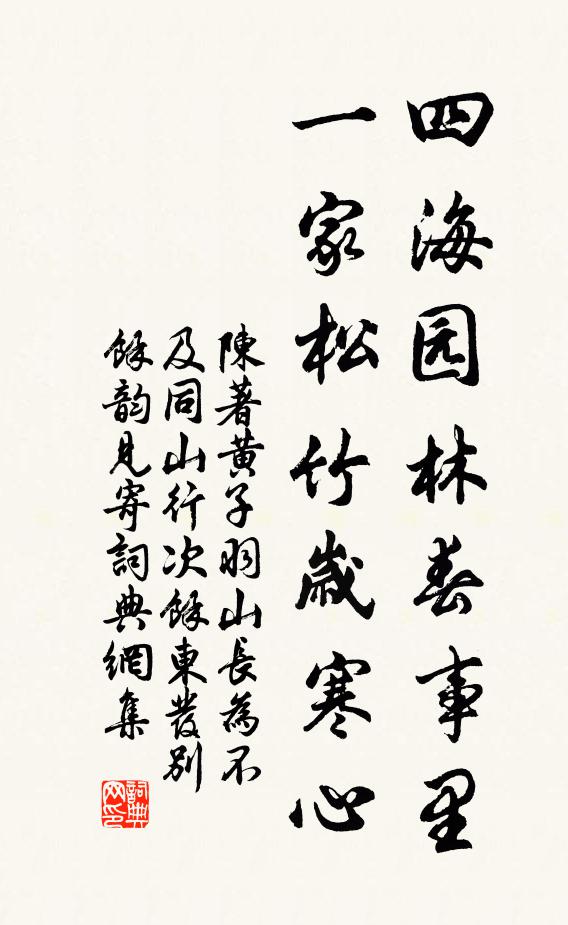 四海园林春事里
一家松竹歲寒心
陳著黄子羽山長為不
及同山行次餘東發別
餘韵見寄詞典網集
詞典
网印